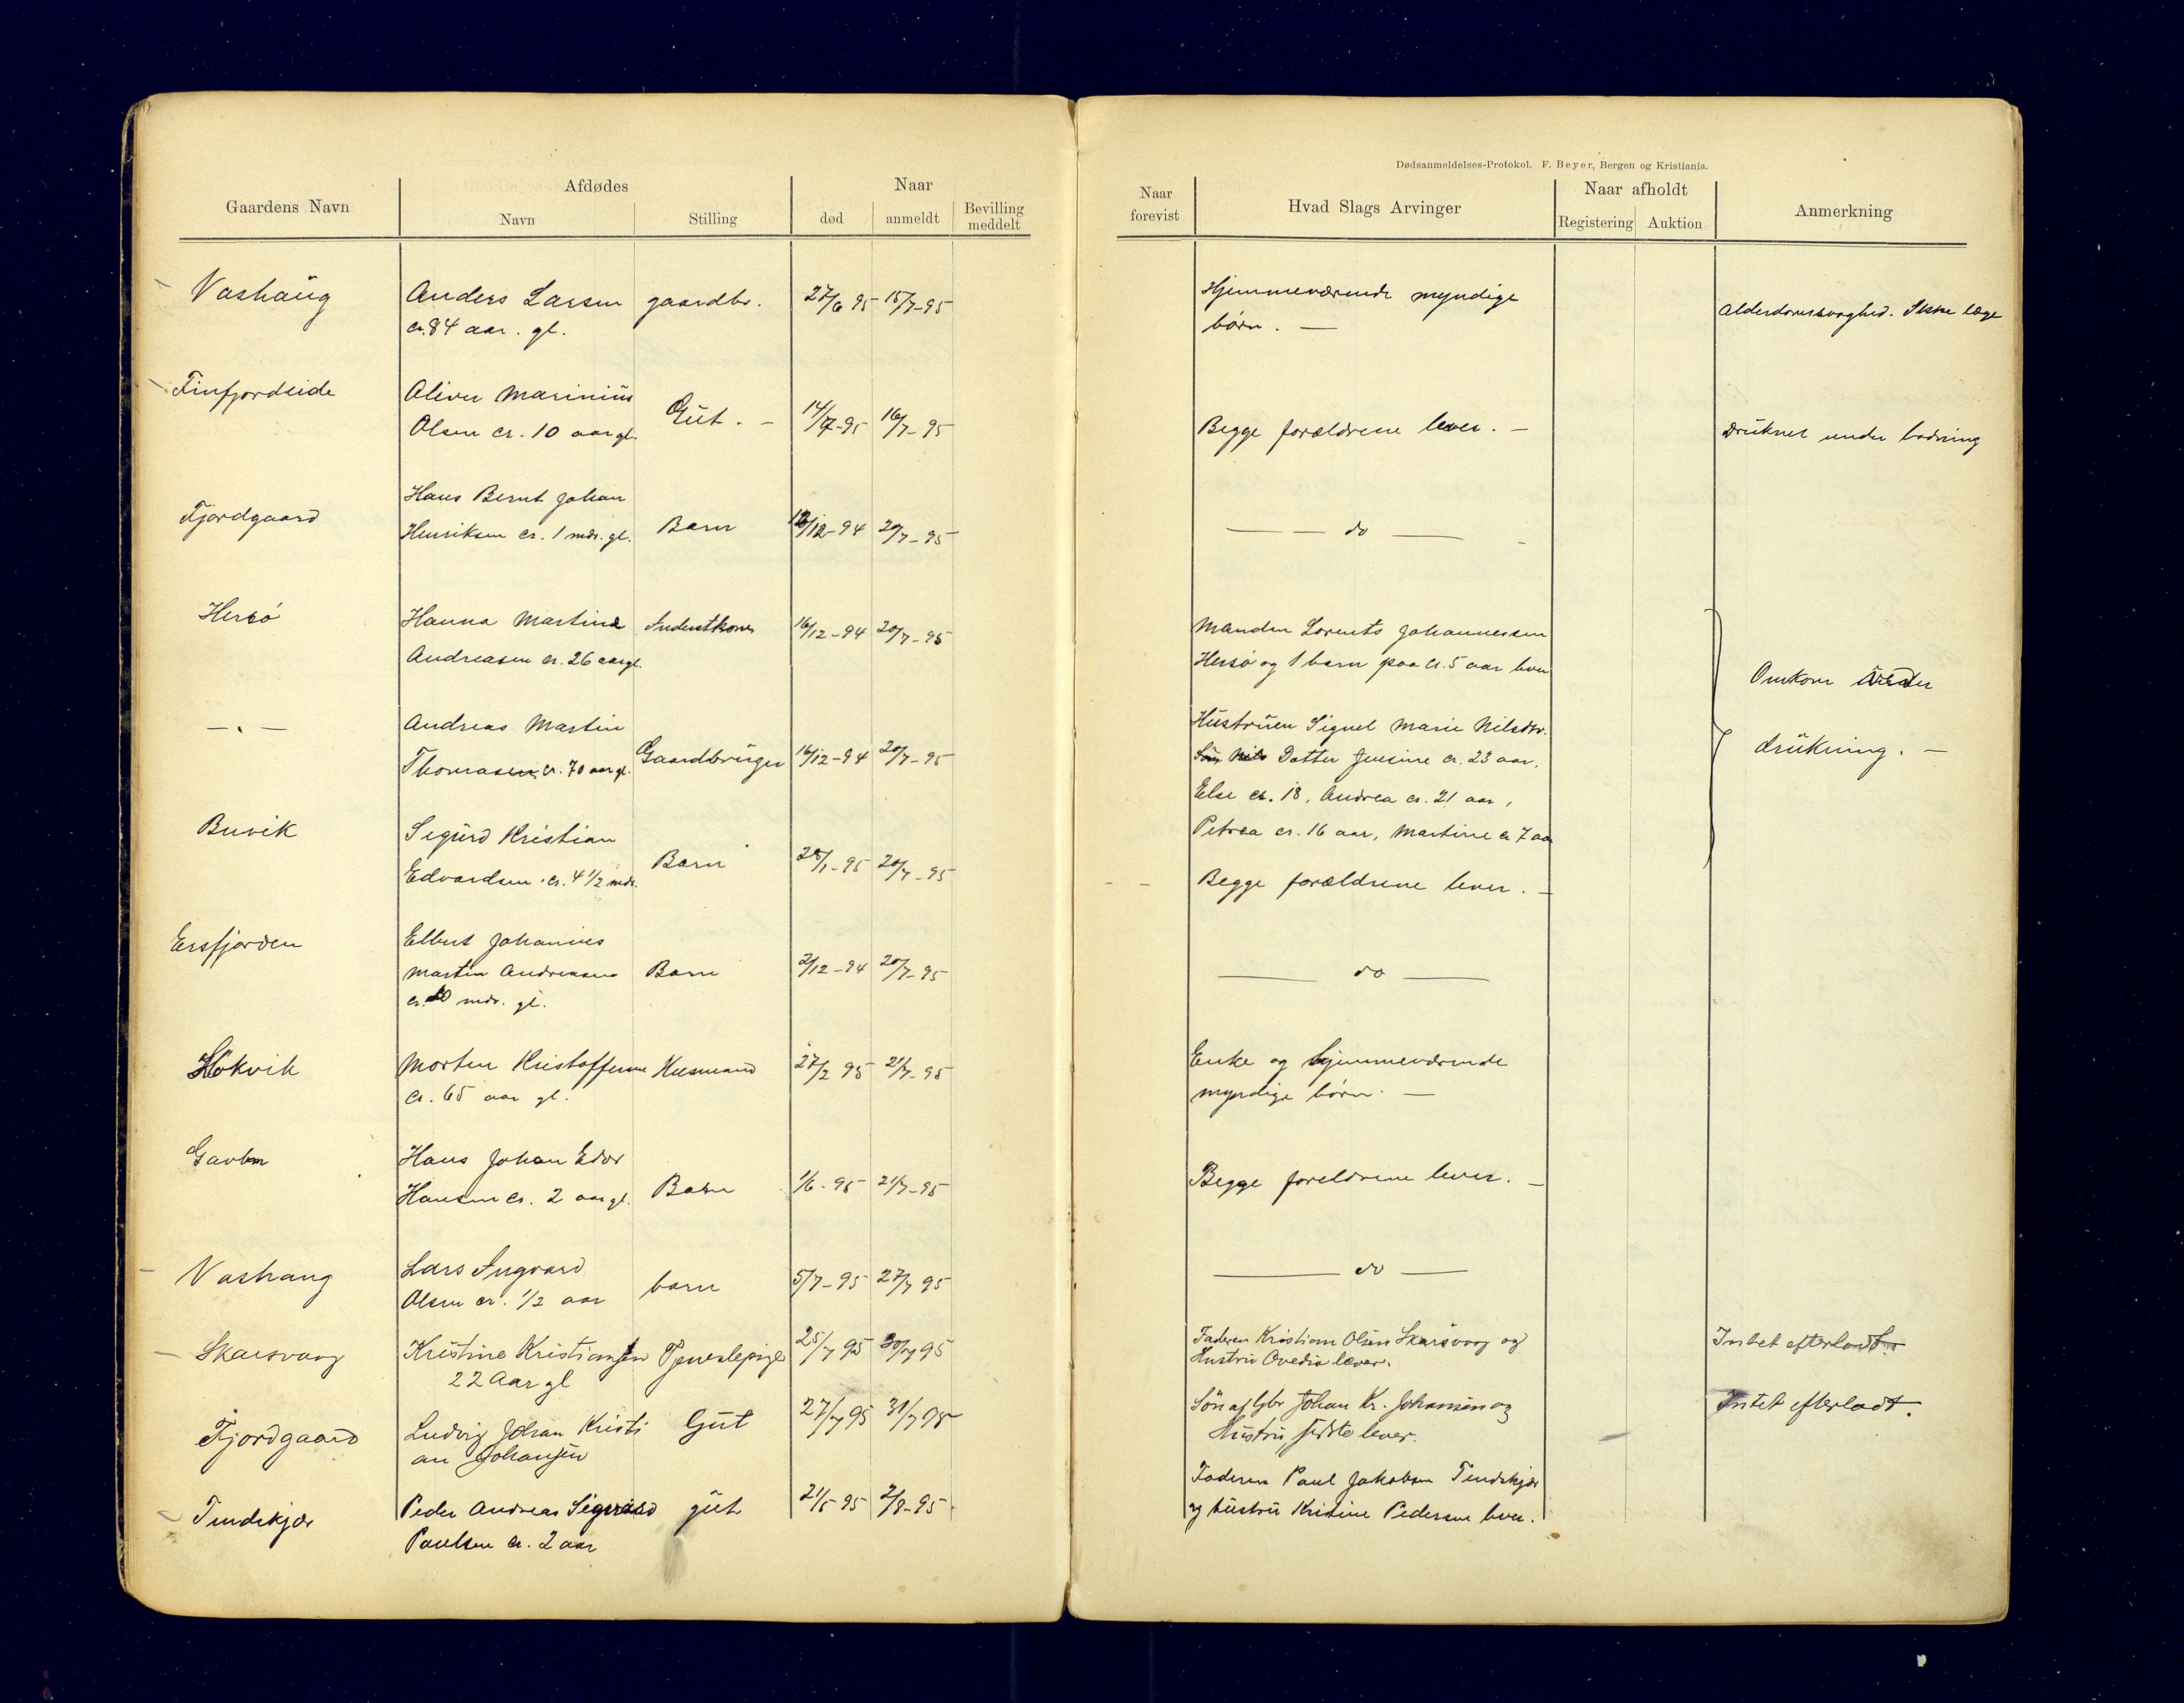 Dødsanmeldelses-Protokol. F. Beyer, Bergen og Kristiania.
Gaardens Navn
Afdødes
Navn
Stilling
Naar
død
anmeldt
Bevilling
meddelt
Naar
forevist
Hvad Slags Arvinger
Naar afholdt
Registering
Auktion
Anmerkning
Vashaug
Anders Larsen gaardbr. 27/6 95 15/7-95
cr. 84 aar. gl.
Hjemmeværende myndige
børn. —
Alderdomssvaghed. Ikke læge
Finfjordeide
Oliver Marinius
Olsen cr. 10 aar gl. Gut. – 14/7-95 16/7-95
Begge forældrene lever. –
Druknet under badning
Fjordgaard
Hans Bernt Johan
Henriksen cr. 1 mdr. gl. Barn 12/12-94 20/7-95
— — do —
Hersø
Hanna Martine 16/12-94 20/7-95
Andreasen cr. 26 aar gl.
Manden Lorents Johannessen
Hersø og 1 barn paa cr. 5 aar lever
Omkom under
drukning. —
— " —
Andreas Martin
Thomasen cr. 70 aar gl. Gaardbruger 16/12-94 20/7-95
Hustruen Signel Marie Nilsdtr.
Datter Jensine cr. 23 aar,
Else cr. 18, Andrea cr. 21 aar,
Petrea cr. 16 aar, Martine cr 7 aar
Buvik
Sigurd Kristian
Edvardsen cr. 4 1/2 mdr. Barn 28/1-95 20/7-95
Begge forældrene lever. —
Ersfjorden
Elbert Johannes
Martin Andreasen Barn 2/12-94 20/7-95
cr. 10 mdr. gl.
— do —
Høkvik
Morten Kristoffersen Husmand 27/2 95 21/7-95
cr. 65 aar gl.
Enke og hjemmeværende
myndige børn. —
Gavlen
Hans Johan Edor
Hansen cr. 2 aar gl. Barn 1/6-95 21/7-95
Begge foreldrene lever. —
Vashaug
Lars Ingvard
Olsen cr. 1/2 aar barn 5/7-95 27/7 95
— do —
Skarsvaag
Kristine Kristiansen Tjenestepige 25/7 95 30/7 95
22 Aar gl
Faderen Kristian Olsen Skarsvaag og
Hustru Ovedia lever.
Intet efterladt.
Fjordgaard
Ludvig Johan Kristi Gut 27/7 95 31/7 95
an Johansen
Søn af Gbr Johan Kr. Johansen og
Hustru, sidste lever.
Intet efterladt.
Tindskjær
Peder Andreas Sigvald gut 21/5 95 2/8-95
Paulsen cr. 2 aar
Faderen Paul Jakobsen Tindskjær
og hustru Kristine Pedersen lever.